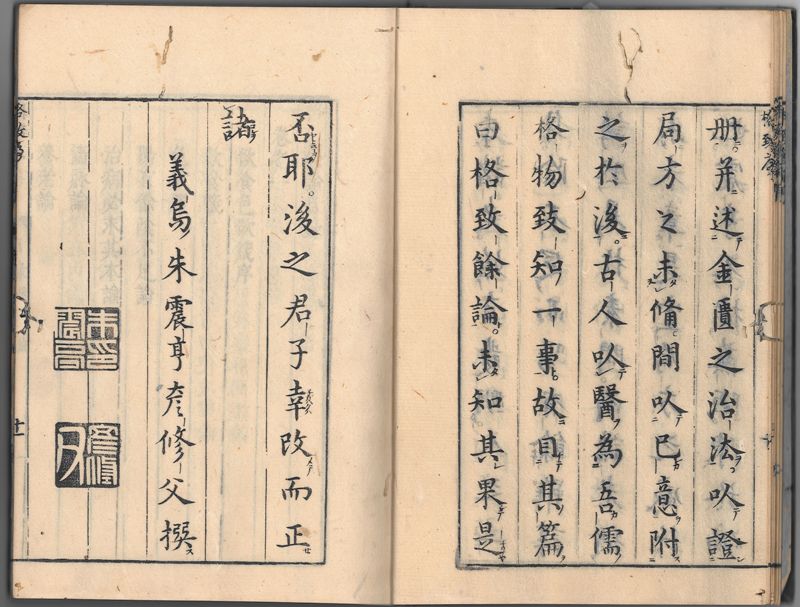 冊并述金匱之治法以證
局方之未備間以已意附
之於後古人以醫為吾儒
格物致知一事故目其篇
曰格致餘論未知其果是
否耶後之君子幸改而正
諸
義烏朱震亨彥修父撰